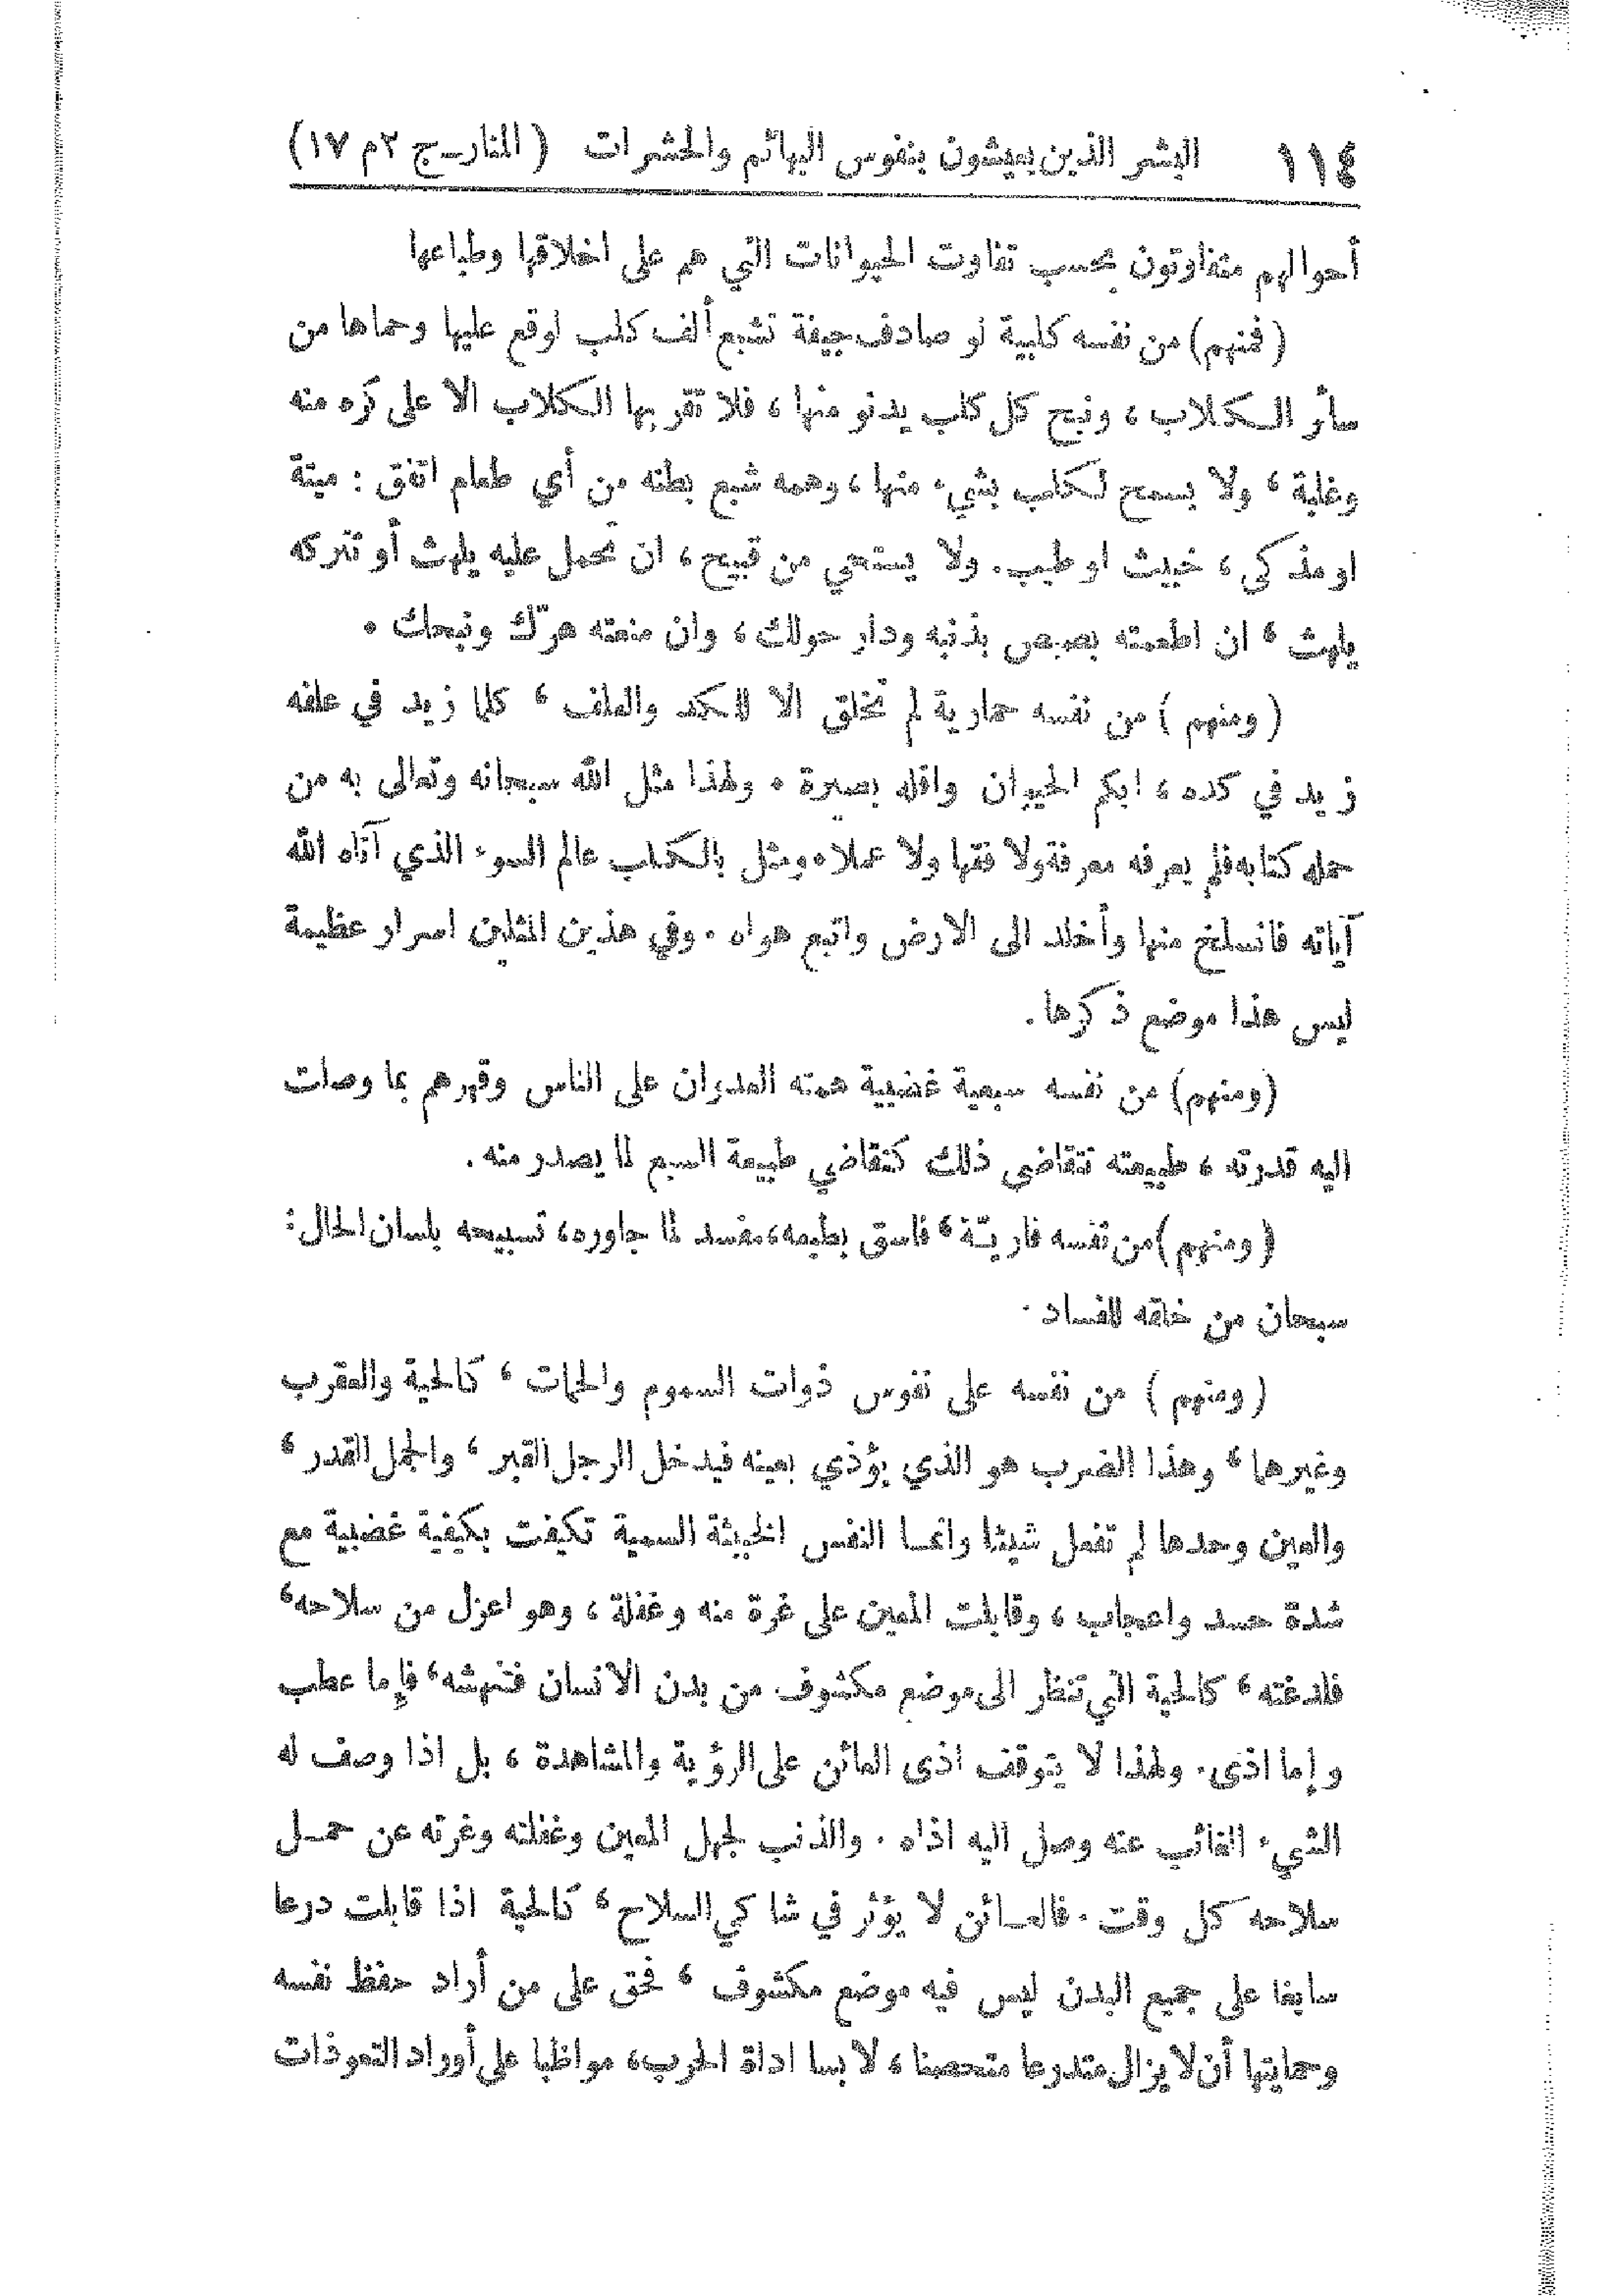 ١١٤ البشر الذين يعيشون بنفوس البهائم والحشرات ( المنار ـ ج ٢ م ١٧ )
أحوالهم متفاوتون بحسب تفاوت الحيوانات التي هم على اخلاقها وطباعها
( فمنهم ) من نفسه كلبية لو صادف جيفة تشبع ألف كلب لوقع عليها وحماها من
سائر الكلاب ، ونبح كل كلب يدنو منها ، فلا تقربها الكلاب الا على كره منه
وغلبة ، ولا يسمح لكلب بشيء منها ، وهمه شبع بطنه من أي طعام اتفق : ميتة
او مذكى ، خبيث او طيب . ولا يستحي من قبيح ، ان تحمل عليه يلهث أو تتركه
يلهث ، ان اطعمته بصبص بذنبه ودار حولك ، وان منعته هرّك ونبحك .
( ومنهم ) من نفسه حمارية لم تخلق الا للكد والعلف ، كلما زيد في علفه
زيد في كده ، ابكم الحيوان واقله بصيرة . ولهذا مثل الله سبحانه وتعالى به من
حمله كتابه فلم يعرفه معرفة ولا فقها ولا عملا . ومثل بالكلب عالم السوء الذي آتاه الله
آياته فانسلخ منها وأخلد الى الارض واتبع هواه . وفي هذين المثلين اسرار عظيمة
ليس هذا موضع ذكرها .
( ومنهم ) من نفسه سبعية غضبية همته العدوان على الناس وقهرهم بما وصلت
اليه قدرته ، طبيعته تتقاضى ذلك كتقاضي طبيعة السبع لما يصدر منه .
( ومنهم ) من نفسه فاريّة ، فاسق بطبعه ، مفسد لما جاوره ، تسبيحه بلسان الحال :
سبحان من خلقه للفساد .
( ومنهم ) من نفسه على نفوس ذوات السموم والحمات ، كالحية والعقرب
وغيرها ، وهذا الضرب هو الذي يؤذي بعينه فيدخل الرجل القبر ، والجمل القدر ،
والعين وحدها لم تفعل شيئا وانما النفس الخبيثة السمية تكيفت بكيفية غضبية مع
شدة حسد واعجاب ، وقابلت المعين على غرة منه وغفلة ، وهو اعزل من سلاحه ،
فلدغته ، كالحية التي تنظر الى موضع مكشوف من بدن الانسان فتنهشه ، فإما عطب
وإما اذى . ولهذا لا يتوقف اذى العائن على الرؤية والمشاهدة ، بل اذا وصف له
الشيء الغائب عنه وصل اليه اذاه . والذنب لجهل المعين وغفلته وغرته عن حمل
سلاحه كل وقت . فالعائن لا يؤثر في شاكي السلاح ، كالحية اذا قابلت درعا
سابغا على جميع البدن ليس فيه موضع مكشوف ، فحق على من أراد حفظ نفسه
وحمايتها أن لا يزال متدرعا متحصنا ، لابسا اداة الحرب ، مواظبا على أوراد التعوذات